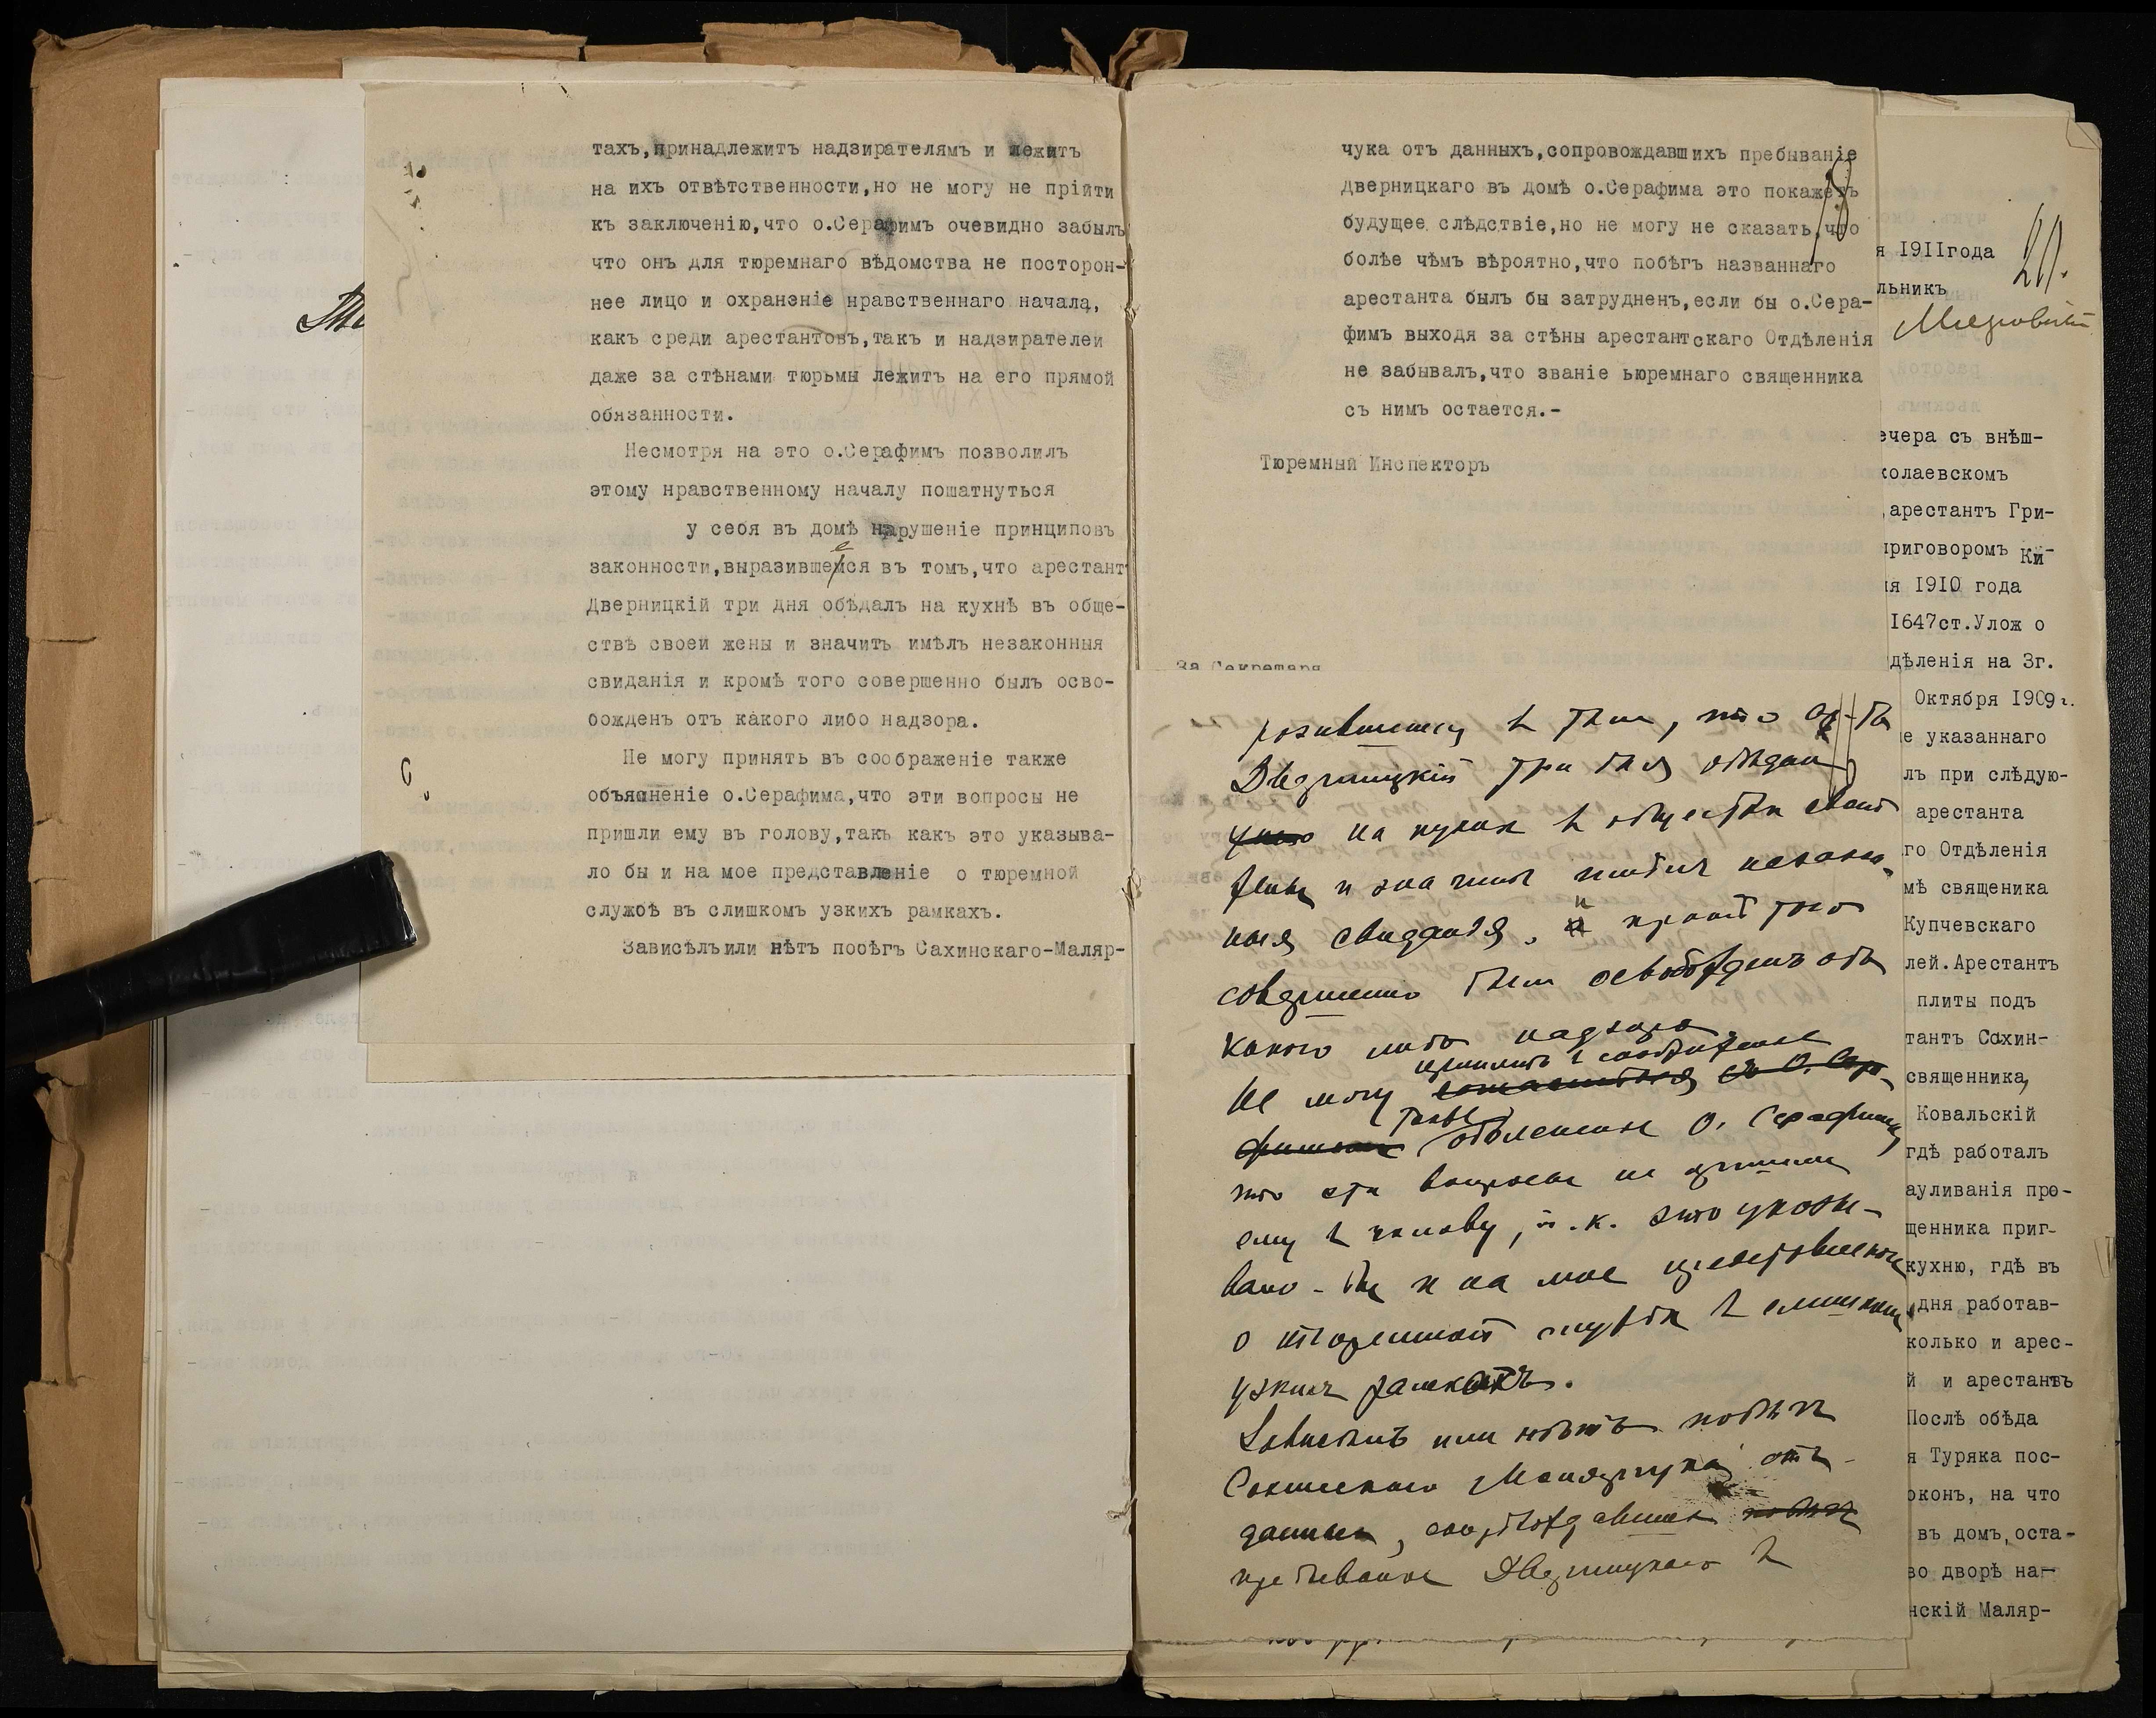 тахъ,принадлежитъ надзирателямъ и лежитъ
на ихъ отвѣтственности,но не могу не прійти
къ заключенію,что о.Серафимъ очевидно забылъ
что онъ для тюремнаго вѣдомства не посторон-
нее лицо и охраненіе нравственнаго начала,
какъ среди арестантовъ,такъ и надзирателей
даже за стѣнами тюрьмы лежитъ на его прямой
обязанности.
Несмотря на это о.Серафимъ позволилъ
этому нравственному началу пошатнуться
у себя въ домѣ нарушеніе принциповъ
законности,выразившееся въ томъ,что арестант
Дверницкій три дня обѣдалъ на кухнѣ въ обще-
ствѣ своей жены и значитъ имѣлъ незаконныя
свиданія и кромѣ того совершенно былъ осво-
божденъ отъ какого либо надзора.
Не могу принять въ соображеніе также
объясненіе о.Серафима,что эти вопросы не
пришли ему въ голову,такъ какъ это указыва-
ло бы и на мое представленіе о тюремной
службѣ въ слишкомъ узкихъ рамкахъ.
Зависѣлъ или нѣтъ побѣгъ Сахинскаго-Маляр-
чука отъ данныхъ,сопровождавшихъ пребываніе
Дверницкаго въ домѣ о.Серафима это покажетъ
будущее слѣдствіе,но не могу не сказать,что
болѣе чѣмъ вѣроятно,что побѣгъ названнаго
арестанта былъ бы затрудненъ,если бы о.Сера-
фимъ выходя за стѣны арестантскаго Отдѣленія
не забывалъ,что званіе ьюремнаго священника
съ нимъ остается.-
Тюремный Инспекторъ
За Секретаря
разившееся в томъ, что ар-тъ
Дверницкій три дня обѣдал
на кухнѣ в обществѣ своей
жены и значит имѣлъ незакон-
ныя свиданія, и кромѣ того
совершенно былъ освобожденъ отъ
какого либо надзора
принять в соображеніе
Не могу согласиться съ О. Сера-
также
фимомъ объясненіе О. Серафима,
что эти вопросы не пришли
ему в голову, т.к. это указы-
вало-бы и на мое представленіе
о тюремной службѣ в слишкомъ
узкихъ рамкахъ.
Зависѣлъ или нѣтъ побѣгъ
Сахинскаго Малярчука отъ
данныхъ, сопровождавшихъ побѣгъ
пребываніе Дверницкаго в
я 1911года
20.
льникъ
ечера съ внѣш-
колаевскомъ
,арестантъ Гри-
приговоромъ Ки-
ія 1910 года
1647ст.Улож о
дѣленія на 3г.
Октября 1909г.
е указаннаго
лъ при слѣдую-
арестанта
го Отдѣленія
мѣ священика
Купчевскаго
лей.Арестантъ
плиты подъ
тантъ Сахин-
священника,
Ковальскій
гдѣ работалъ
ауливанія про-
щенника приг-
кухню, гдѣ въ
дня работав-
колько и арес-
й и арестантъ
Послѣ обѣда
я Туряка пос-
оконъ, на что
въ домъ, оста-
во дворѣ на-
нскій Маляр-